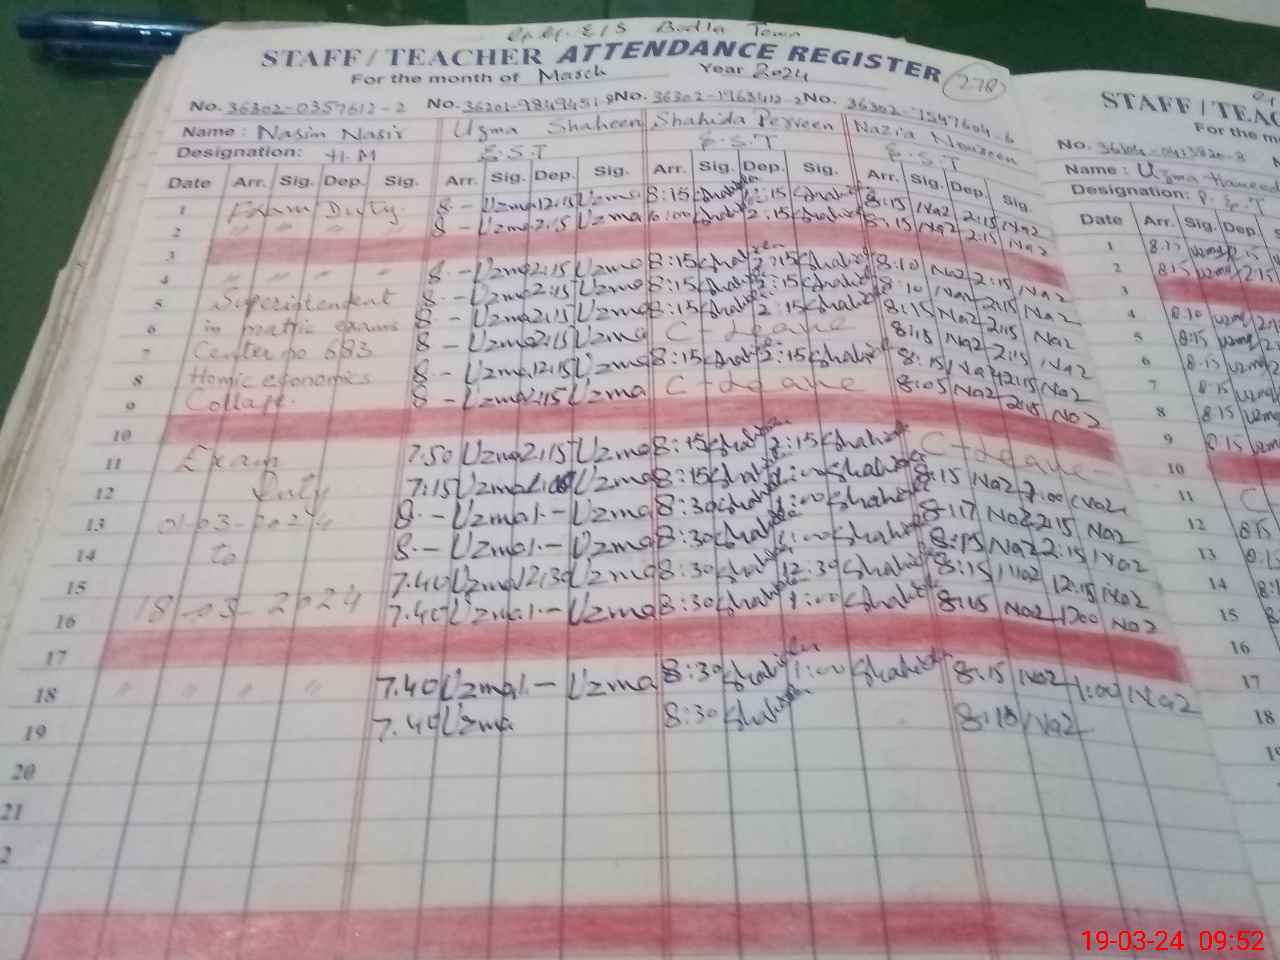 Badla Town
STAFF/TEACHER ATTENDANCE REGISTER
For the month of March Year 2024
278
No. 36302-0357612-2 No. 36201-9849451-8 No. 36302-1963412-2 No. 36302-1547604-6
Name: Nasim Nasir Uzma Shaheen Shahida Perveen Nazia Noureen
Designation: H.M E.S.T E.S.T E.S.T
Date Arr. Sig. Dep. Sig. Arr. Sig. Dep. Sig. Arr. Sig. Dep. Sig. Arr. Sig. Dep. Sig.
1 Exam Duty 8 - Uzma 12:15 Uzma 8:15 Shahida 12:15 Shahida 8:15 Naz 2:15 Naz
2 " " " " 8 - Uzma 2:15 Uzma Shahida 2:15 Shahida 8:15 Naz 2:15 Naz
3
4 " " " " 8 - Uzma 2:15 Uzma 8:15 Shahida 2:15 Shahida 8:10 Naz 2:15 Naz
5 Superintendent 8 - Uzma 2:15 Uzma 8:15 Shahida 2:15 Shahida 8:10 Naz 2:15 Naz
6 in matric exams 8 - Uzma 2:15 Uzma 8:15 Shahida 2:15 Shahida 8:15 Naz 2:15 Naz
7 Center no 683 8 - Uzma 2:15 Uzma C - Leave 8:15 Naz 2:15 Naz
8 Homic economics 8 - Uzma 12:15 Uzma 8:15 Shahida 2:15 Shahida 8:15 Naz 2:15 Naz
9 8 - Uzma 2:15 Uzma C - Leave 8:05 Naz 2:15 Naz
10
11 Exam 7.50 Uzma 2:15 Uzma 8:15 Shahida 2:15 Shahida C - Leave
12 Duty 7:15 Uzma Uzma 8:15 Shahida 1:00 Shahida 8:15 Naz Naz
13 01-03-2024 8 - Uzma 1 - Uzma 8:30 Shahida 1:00 Shahida 8:17 Naz 2:15 Naz
14 to 8 - Uzma 1 - Uzma 8:30 Shahida 1:00 Shahida 8:15 Naz 2:15 Naz
15 7.40 Uzma 12:30 Uzma 8:30 Shahida 12:30 Shahida 8:15 Naz 12:15 Naz
16 18-03-2024 7.40 Uzma 1 - Uzma 8:30 Shahida 1:00 Shahida 8:15 Naz 1:00 Naz
17
18 " " " " 7.40 Uzma 1 - Uzma 8:30 Shahida 1:00 Shahida 8:15 Naz 1:00 Naz
19 7.40 Uzma 8:30 Shahida 8:15 Naz
20
21
2
STAFF/TEAC
For the m
Name: Uzma Hameed
Designation: P.S.T
Date Arr. Sig. Dep.
1 8:15
2 8:15 2:15
3
4 8:10
5 8:15
6 8:15
7 8:15
8 8:15
9 8:15
10
11 C
12 8:15
13
14
15
16
17
18
19-03-24 09:52